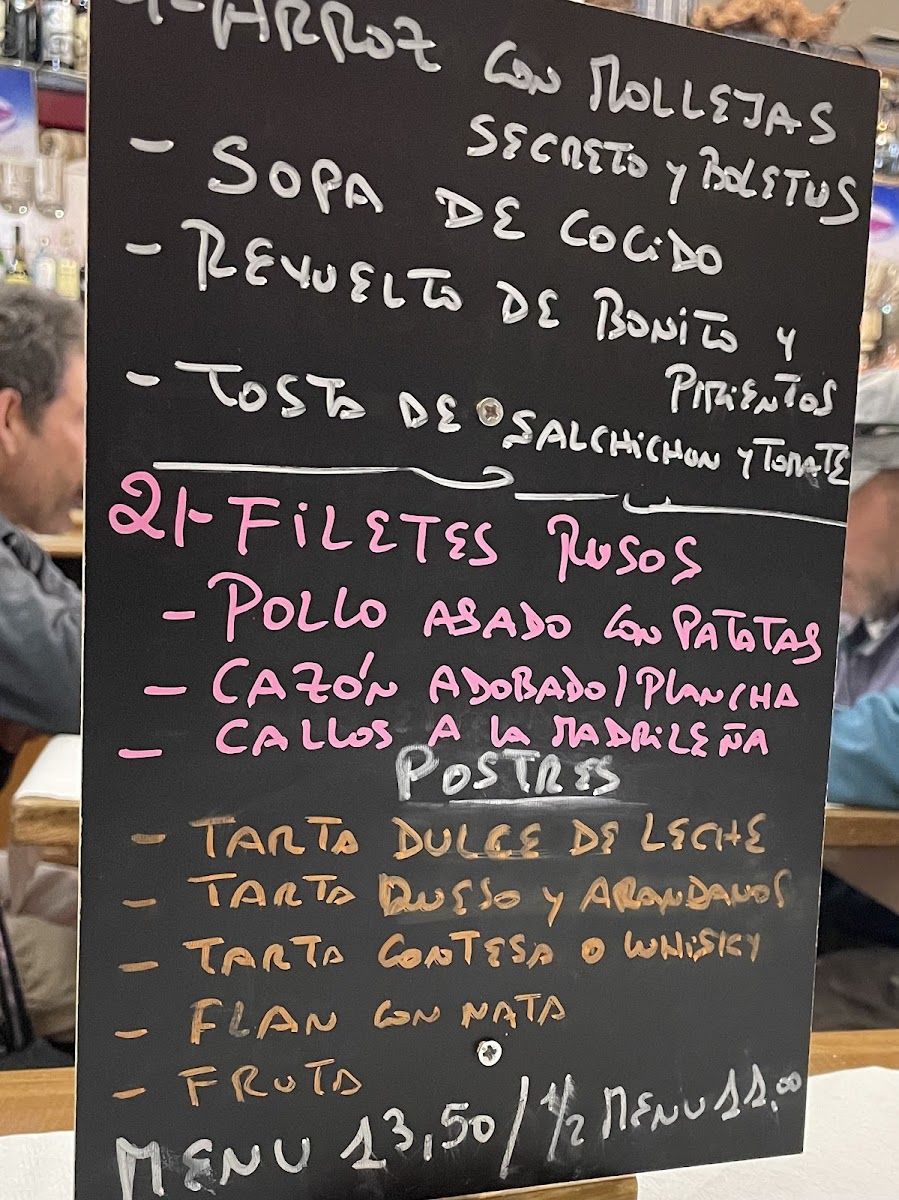 1-ARROZ CON MOLLEJAS
SECRETO y BOLETUS
- SOPA DE COCIDO
- REVUELTO DE BONITO y
PIMIENTOS
- TOSTA DE SALCHICHON y TOMATE
2-FILETES RUSOS
- POLLO ASADO CON PATATAS
- CAZÓN ADOBADO/PLANCHA
- CALLOS A LA MADRILEÑA
POSTRES
- TARTA DULCE DE LECHE
- TARTA QUESO y ARANDANOS
- TARTA CONTESA O WHISKY
- FLAN CON NATA
- FRUTA
MENU 13,50 / 1/2 MENU 11,00